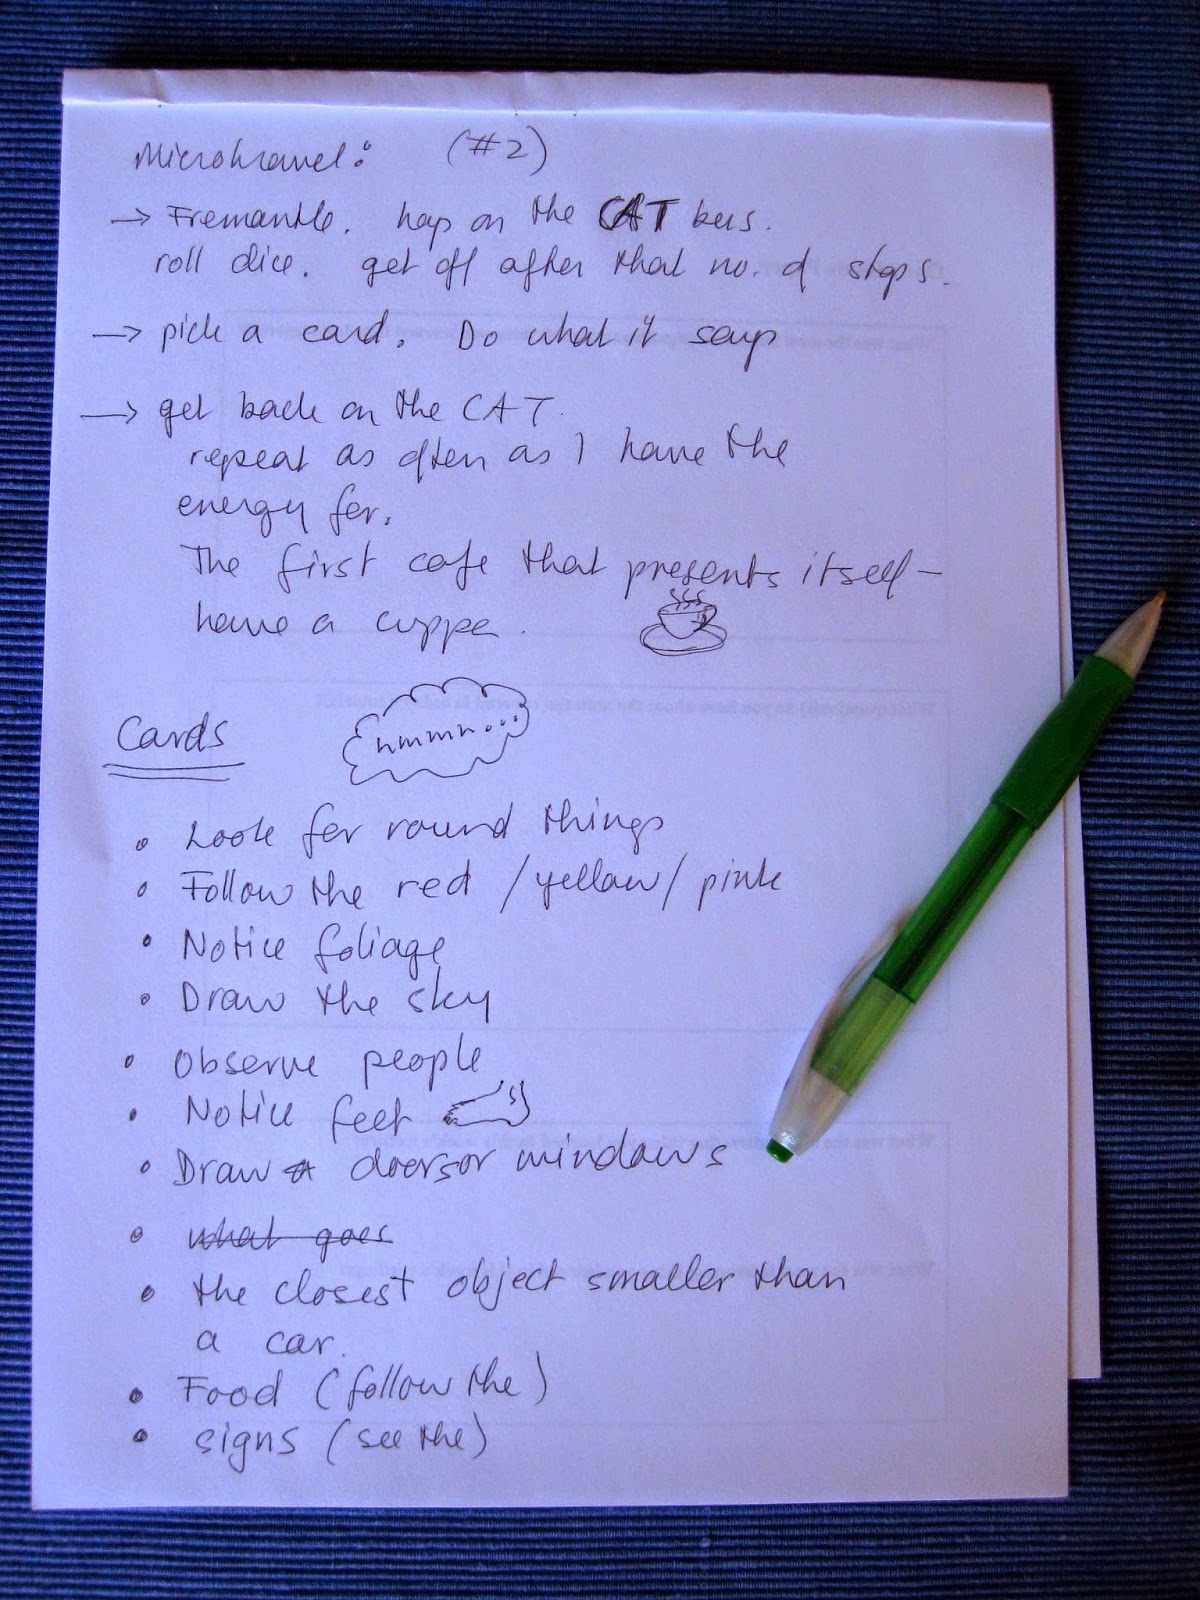 Microtravel: (#2)
→ Fremantle. hop on the CAT bus.
roll dice. get off after that no. of stops.
→ pick a card. Do what it says
→ get back on the CAT.
repeat as often as I have the
energy for.
The first cafe that presents itself –
have a cuppa.
Cards
hmmm...
• Look for round things
• Follow the red / yellow / pink
• Notice foliage
• Draw the sky
• Observe people
• Notice feet
• Draw doors or windows
• what goes
• the closest object smaller than
a car.
• Food (follow the)
• signs (see the)